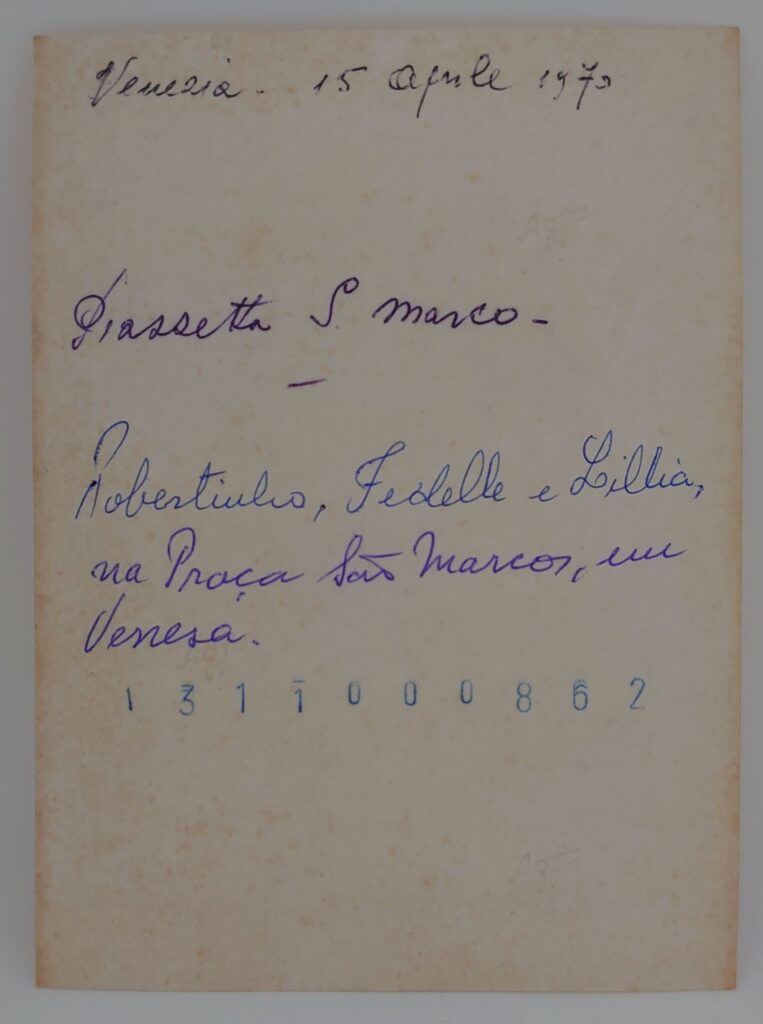 Venezia - 15 Aprile 1970
Piassetta S. Marco -
Robertinho, Fedelle e Lillia,
na Praça São Marcos, em
Venesa.
1311000862